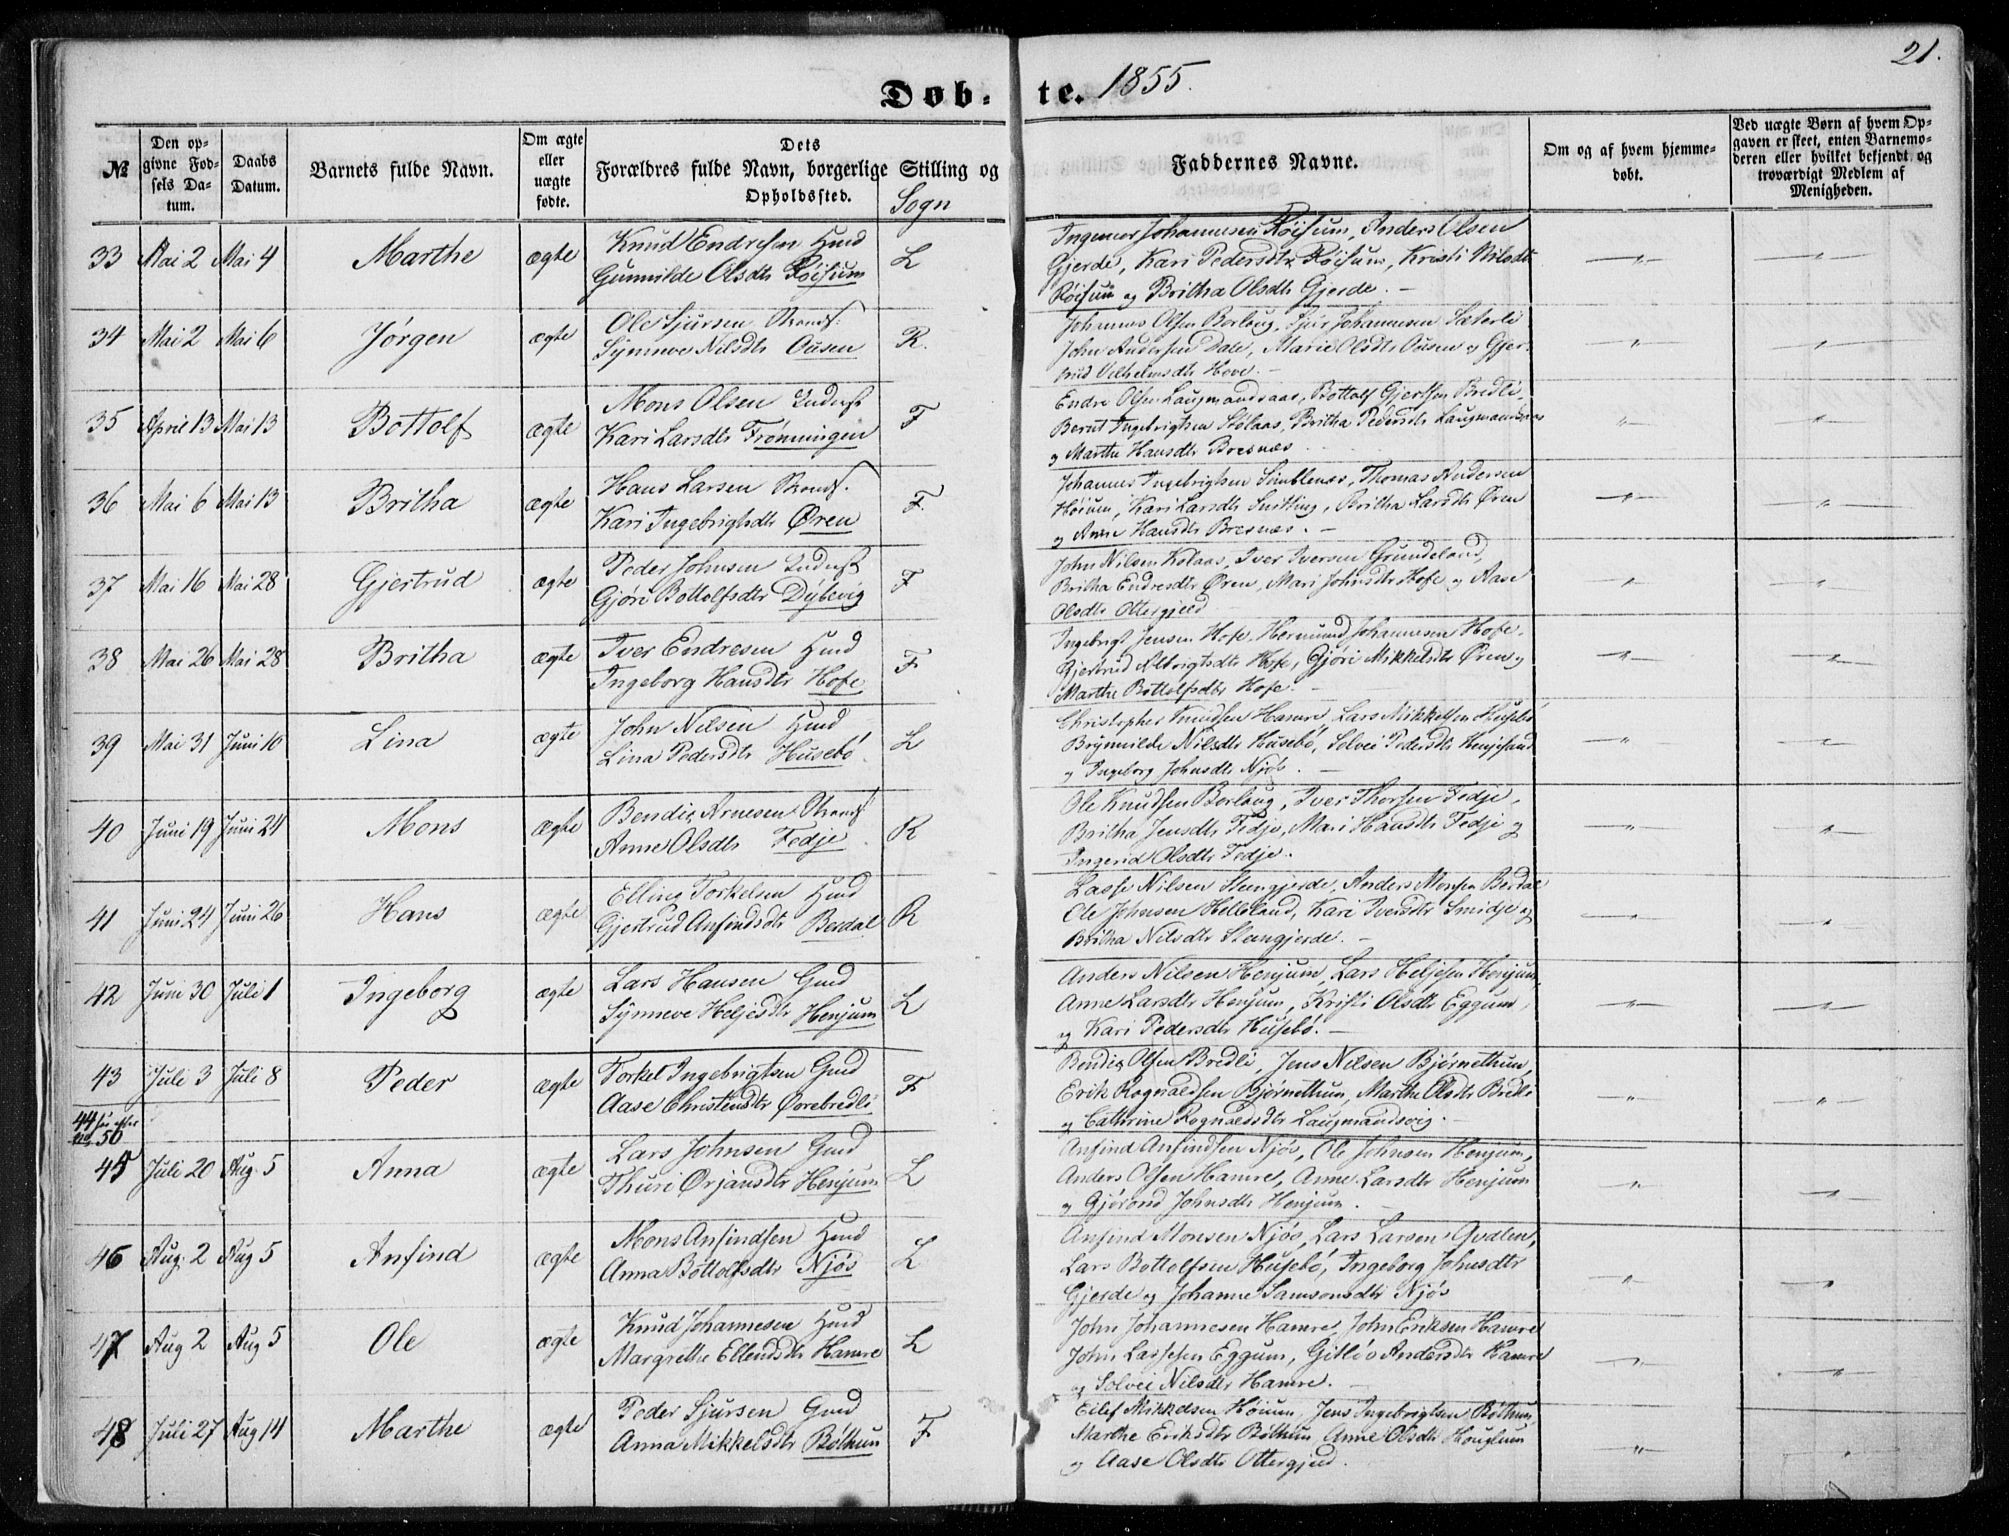 21.
Døb-te. 1855.
№
Den opgivne Fødsels Datum.
Daabs Datum.
Barnets fulde Navn.
Om ægte eller uægte fødte.
Dets Forældres fulde Navn, borgerlige Stilling og Opholdssted.
Sogn
Faddernes Navne.
Om og af hvem hjemmedøbt.
Ved uægte Børn af hvem Opgaven er skeet, enten Barnemoderen eller hvilket bekjendt og troværdigt Medlem af Menigheden.
33 Mai 2 Mai 4 Marthe ægte Knud Endresen Hmd L
Gunnilde Olsdtr Røisum
Ingemer Johannesen Røisum, Anders Olsen
Gjerde, Kari Pedersdtr Røisum, Kristi Nilsdtr
Røisum og Britha Olsdtr Gjerde. —
34 Mai 2 Mai 6 Jørgen ægte Ole Sjursen Strands. R.
Synneve Nilsdtr Ousen
Johannes Olsen Borlaug, Sjur Johannesen Sæterli
John Andersen Dale, Marie Olsdtr Ousen og Gjer-
trud Vilhelmsdtr Hove. —
35 April 13 Mai 13 Bottolf ægte Mons Olsen Inderst F
Kari Larsdtr Frønningen
Endre Olsen Laugmandsaas, Bottolf Gjertsen Bredli,
Bernt Ingebrigtsen Stølaas, Britha Pedersdtr Laugmandsaas
og Marthe Hansdtr Bresnæs
36 Mai 6 Mai 13 Britha ægte Hans Larsen Strands. F.
Kari Ingebrigtsdtr Øren
Johannes Ingebrigtsen Simblenæs, Thomas Andersen
Høium, Kari Larsdtr, Britha Larsdtr Øren
og Anne Hansdtr Bresnæs. —
37 Mai 16 Mai 28 Gjertrud ægte Peder Johnsen Inderst F
Gjøri Bottolfsdtr Dybevig
John Nilsen Kolaas, Iver Iversen Grundeland,
Britha Endresdtr Øren, Mari Johnsdtr Hofe og Aase
Olsdtr Ottergjeld
38 Mai 26 Mai 28 Britha ægte Iver Endresen Hmd F
Ingeborg Hansdtr Hofe
Ingebrigt Jensen Hofe, Hermund Johannesen Hofe,
Gjertrud Albrigtsdtr Hofe, Gjøri Mikkelsdtr Øren og
Marthe Bottolfsdtr Hofe. —
39 Mai 31 Juni 10 Lina ægte John Nilsen Hmd L
Lina Pedersdtr Husebø.
Christopher Knudsen Hamre, Lars Mikkelsen Husebø
Brynnilde Nilsdtr Husebø, Solvei Pedersdtr
og Ingeborg Johnsdtr Njøs. —
40 Juni 19 Juni 24 Mons ægte Bendix Arnesen Strands R
Anne Olsdtr Fedje
Ole Knudsen Borlaug, Iver Thorsen Fedje,
Britha Jensdtr Fedje, Mari Hansdtr Fedje og
Ingerid Olsdtr Fedje.
41 Juni 24 Juni 26 Hans ægte Elling Torkelsen Hmd R
Gjertrud Anfindsdtr Berdal
Lasse Nilsen Steengjerde, Anders Monsen Berdal
Ole Johnsen Helleland, Kari Iversdtr Smidje og
Britha Nilsdtr Steengjerde. —
42 Juni 30 Juli 1 Ingeborg ægte Lars Hansen Gmd L
Synneve Heljesdtr Henjum
Anders Nilsen Henjum, Lars Heljesen Henjum
Anne Larsdtr Henjum, Kristi Olsdtr Eggum,
og Kari Pedersdtr Husebø. —
43 Juli 3 Juli 8 Peder ægte Torkel Ingebrigtsen Gmd F
Aase Christensdtr Øvrebredli
Bendix Olsen Bredli, Jens Nilsen Bjørnettum,
Erik Rognaldsen Bjørnettum, Marthe Olsdtr Bredli
og Cathrine Rognaldsdtr Laugmandsvig. —
44 see efter
No 50
45 Juli 20 Aug. 5 Anna ægte Lars Johnsen Gmd L
Thuri Ørjansdtr Henjum
Anfind Anfindsen Njøs, Ole Johnsen Henjum,
Anders Olsen Hamre, Anne Larsdtr Henjum
og Gjørond Johnsdtr Henjum.
46 Aug. 2 Aug 5 Anfind ægte Mons Anfindsen Hmd L
Anna Bottolfsdtr Njøs
Anfind Monsen Njøs, Lars Larsen Qvalen,
Lars Bottolfsen Husebø, Ingeborg Johnsdtr
Gjerde og Johanne Samsonsdtr Njøs
47 Aug 2 Aug 5 Ole ægte Knud Johannesen Hmd L
Margrethe Ellendsdtr Hamre
John Johannesen Hamre, John Eriksen Hamre
John Lassesen Eggum, Gitløs Andersdtr Hamre
og Solvei Nilsdtr Hamre. —
48 Juli 27 Aug 14 Marthe ægte Peder Sjursen Gmd F
Anna Mikkelsdtr Bøthun
Eilef Mikkelsen Høium, Jens Ingebrigtsen Bøthun,
Marthe Eriksdtr Bøthun, Anne Olsdtr Houglum
og Aase Olsdtr Ottergjeld.